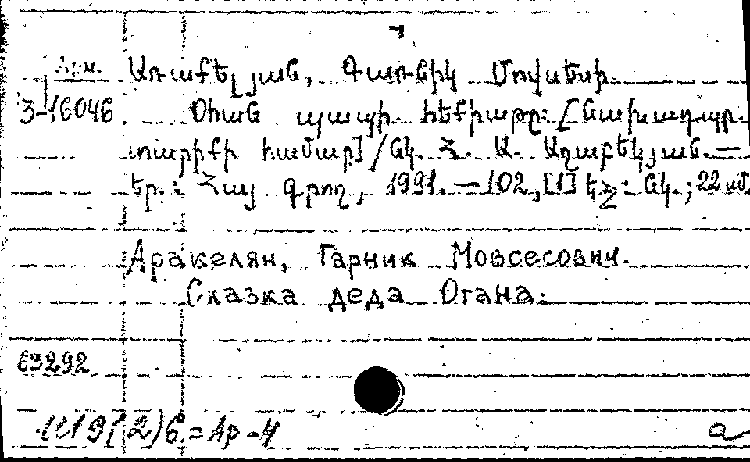 Առաքելյան, Գառնիկ Մովսեսի.
3-16046 Օհան պապի հեքիաթը: [Նախադպր.
տարիքի համար] / Նկ. Հ. Ա. Աղաբեկյան. —
Եր.: Հայ գրող, 1991. — 102, [1] էջ: նկ.; 22 սմ.
Аракелян, Гарник Мовсесович.
Сказка деда Огана.
63292